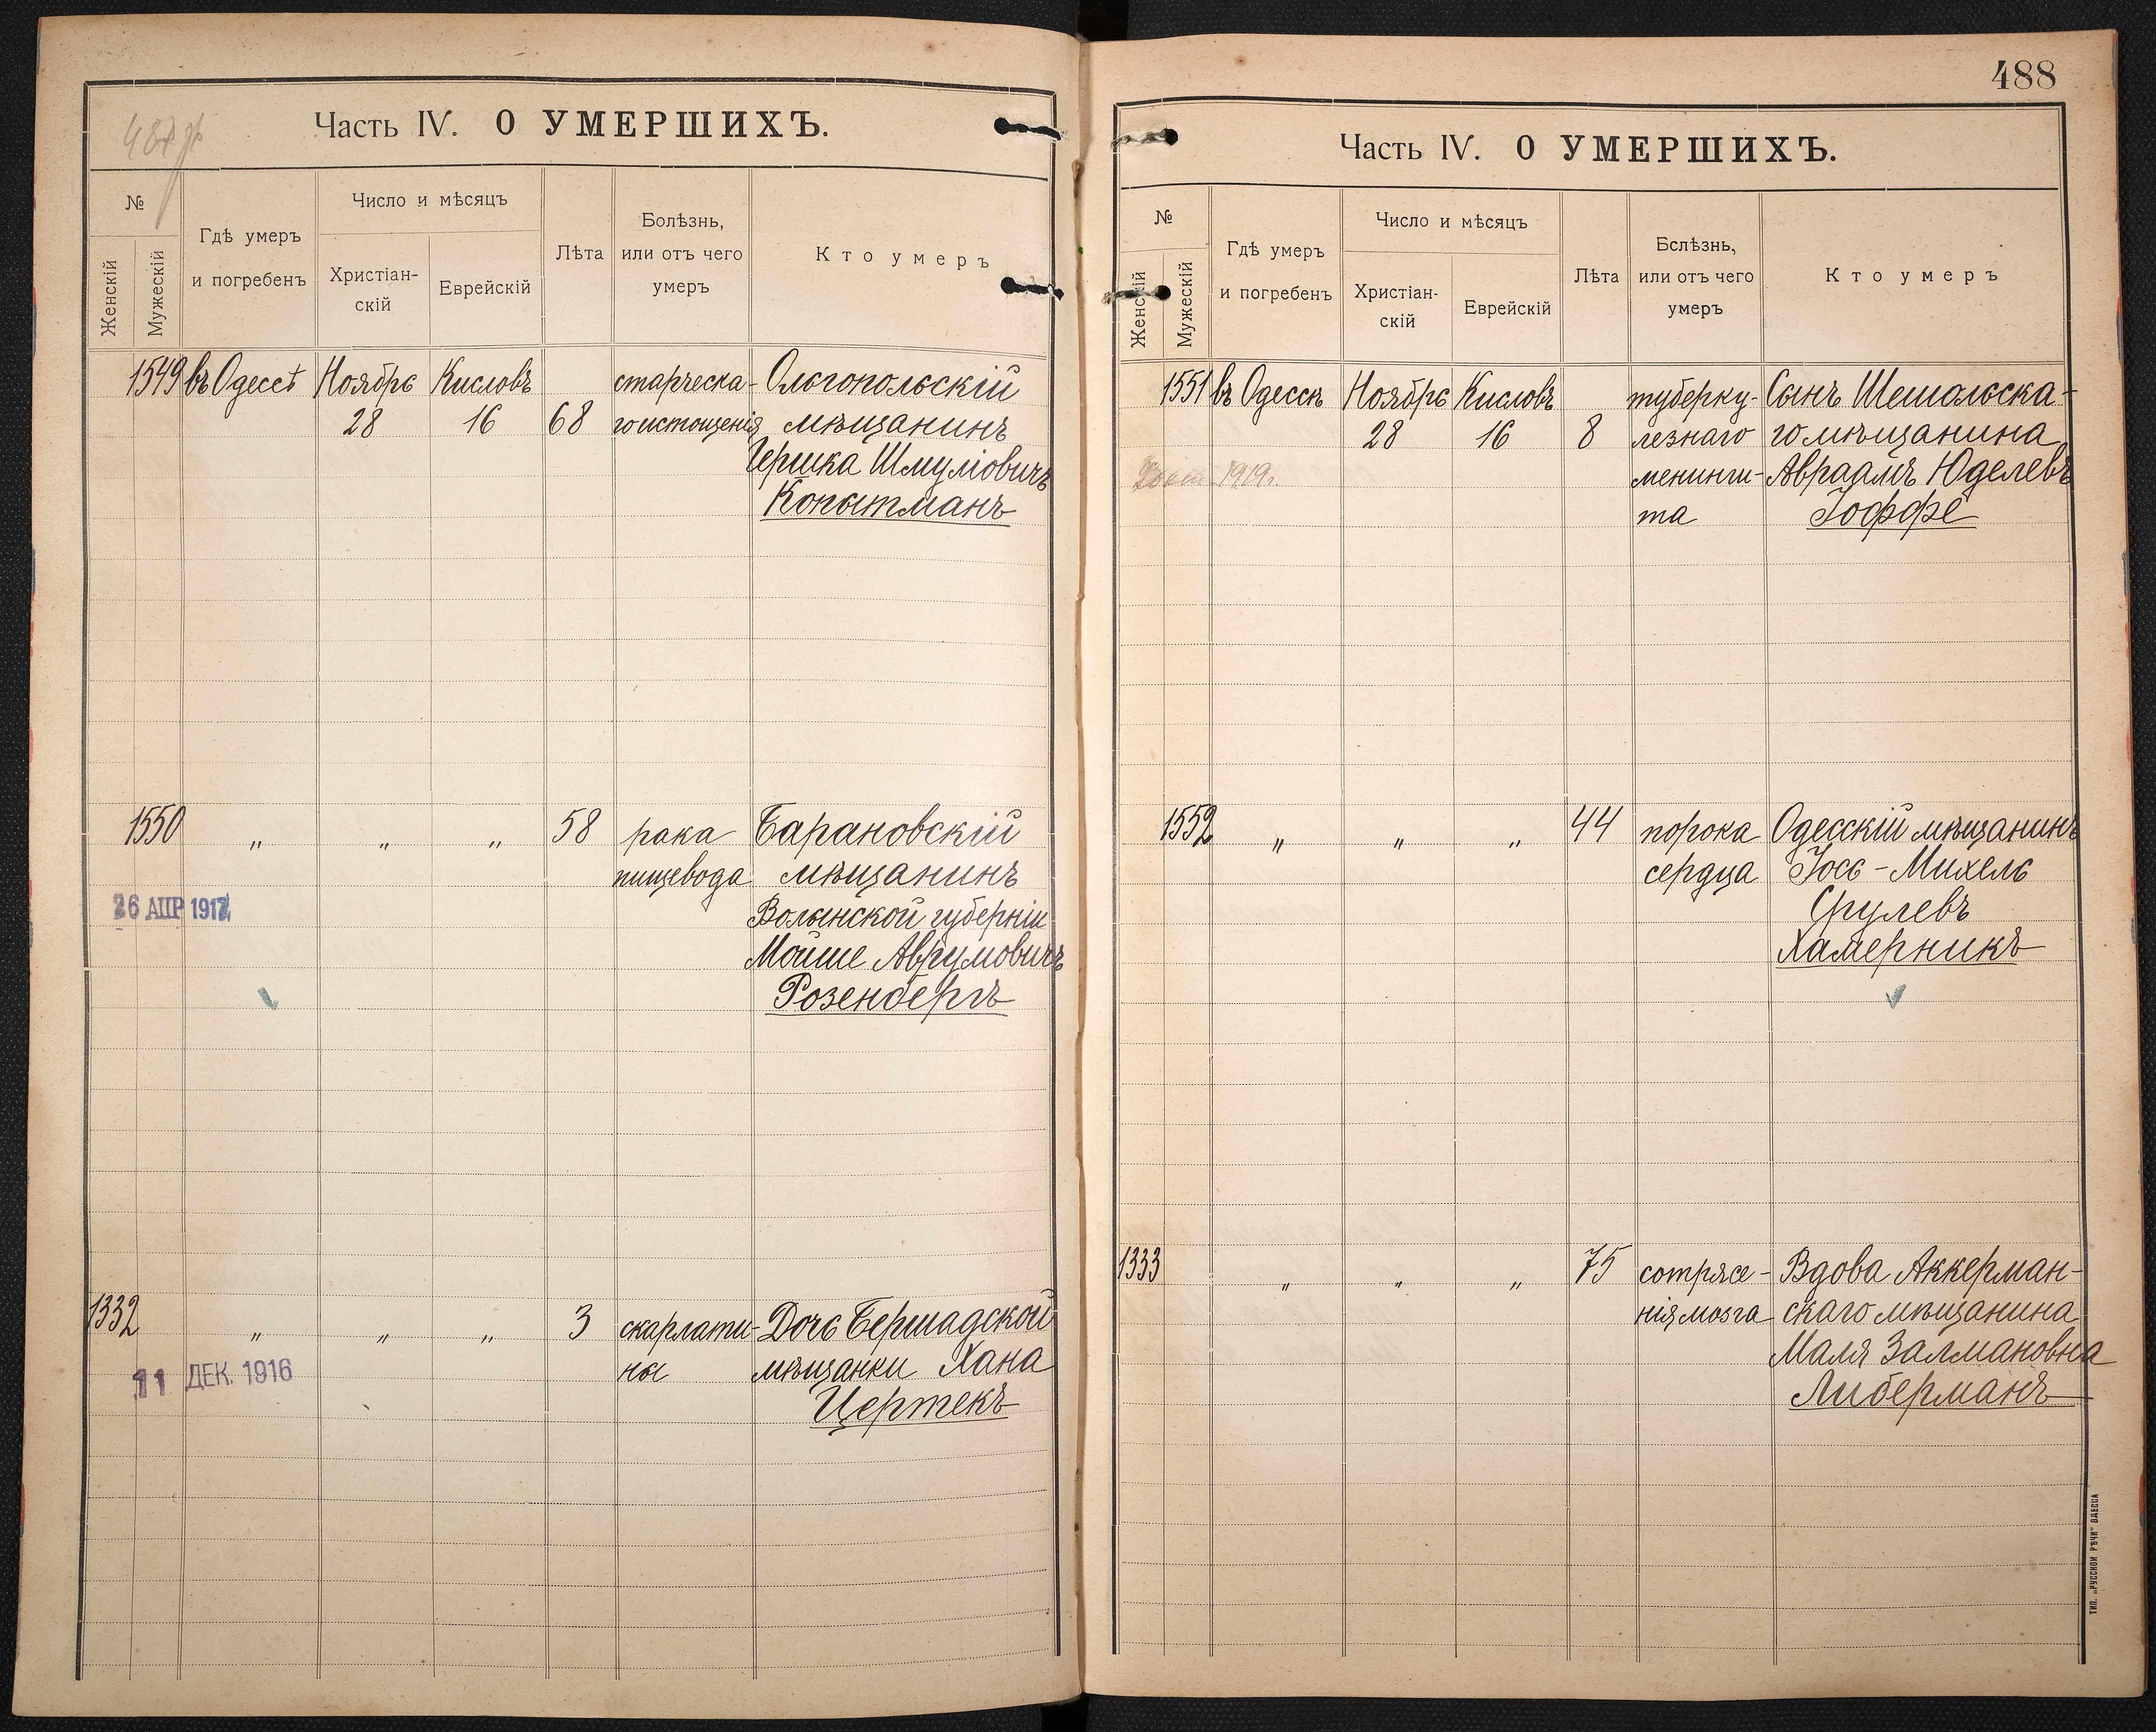 Часть IV. О УМЕРШИХЪ.
№
Женскій
Мужескій
Гдѣ умеръ
и погребенъ
Число и мѣсяцъ
Христіан-
скій
Еврейскій
Лѣта
Болѣзнь,
или отъ чего
умеръ
Кто умеръ
1549 въ Одессѣ Ноябрь Кисловъ старческа- Ольгопольскій
28 16 68 го истощенія мѣщанинъ
Гершка Шмуліовичъ
Копытманъ
1550 „ „ „ 58 рака Барановскій
пищевода мѣщанинъ
26 АПР 1917 Волынской губерніи
Мойше Аврумовичъ
Розенбергъ
1332 „ „ „ 3 скарлати- Дочь Бершадской
11 ДЕК. 1916 ны мѣщанки Хана
Цертекъ
488
Часть IV. О УМЕРШИХЪ.
№
Женскій
Мужескій
Гдѣ умеръ
и погребенъ
Число и мѣсяцъ
Христіан-
скій
Еврейскій
Лѣта
Бслѣзнь,
или отъ чего
умеръ
Кто умеръ
1551 въ Одессѣ Ноябрь Кисловъ туберку- Сынъ Шешольска-
28 16 8 лезнаго го мѣщанина
1919г. менинги- Авраамъ Юделевъ
та Іоффе
1552 „ „ „ 44 порока Одесскій мѣщанинъ
сердца Іось-Михель
Срулевъ
Хамерникъ
1333 „ „ „ 75 сотрясе- Вдова Аккерман-
нія мозга скаго мѣщанина
Маля Залмановна
Либерманъ
ТИП. „РУССКОЙ РѢЧИ" ОДЕССА